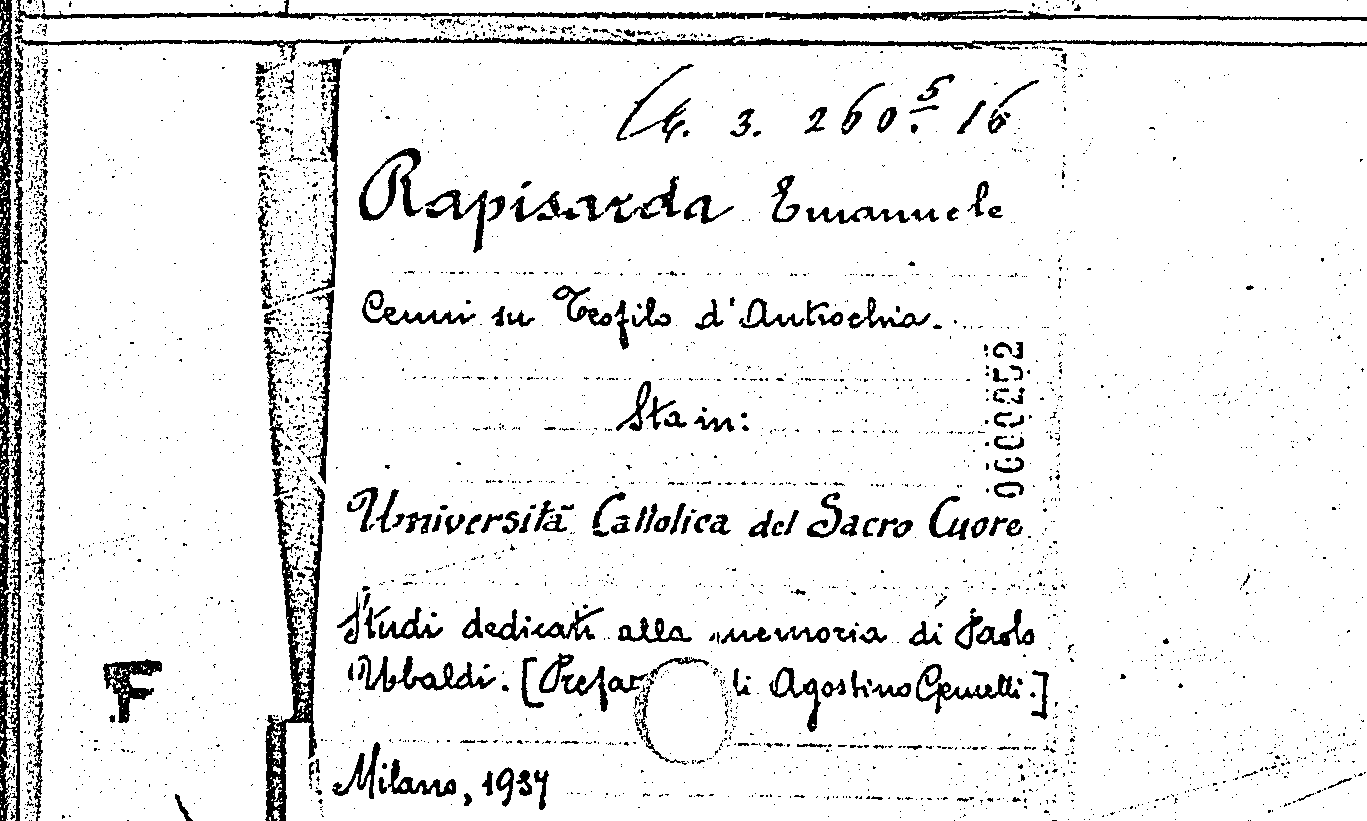 3. 260 5. 16
Rapisarda Emanuele
Cenni su Teofilo d'Antiochia.
Sta in:
0000252
Università Cattolica del Sacro Cuore
Studi dedicati alla memoria di Paolo
Ubaldi. [Prefaz di Agostino Gemelli.]
F
Milano, 1937